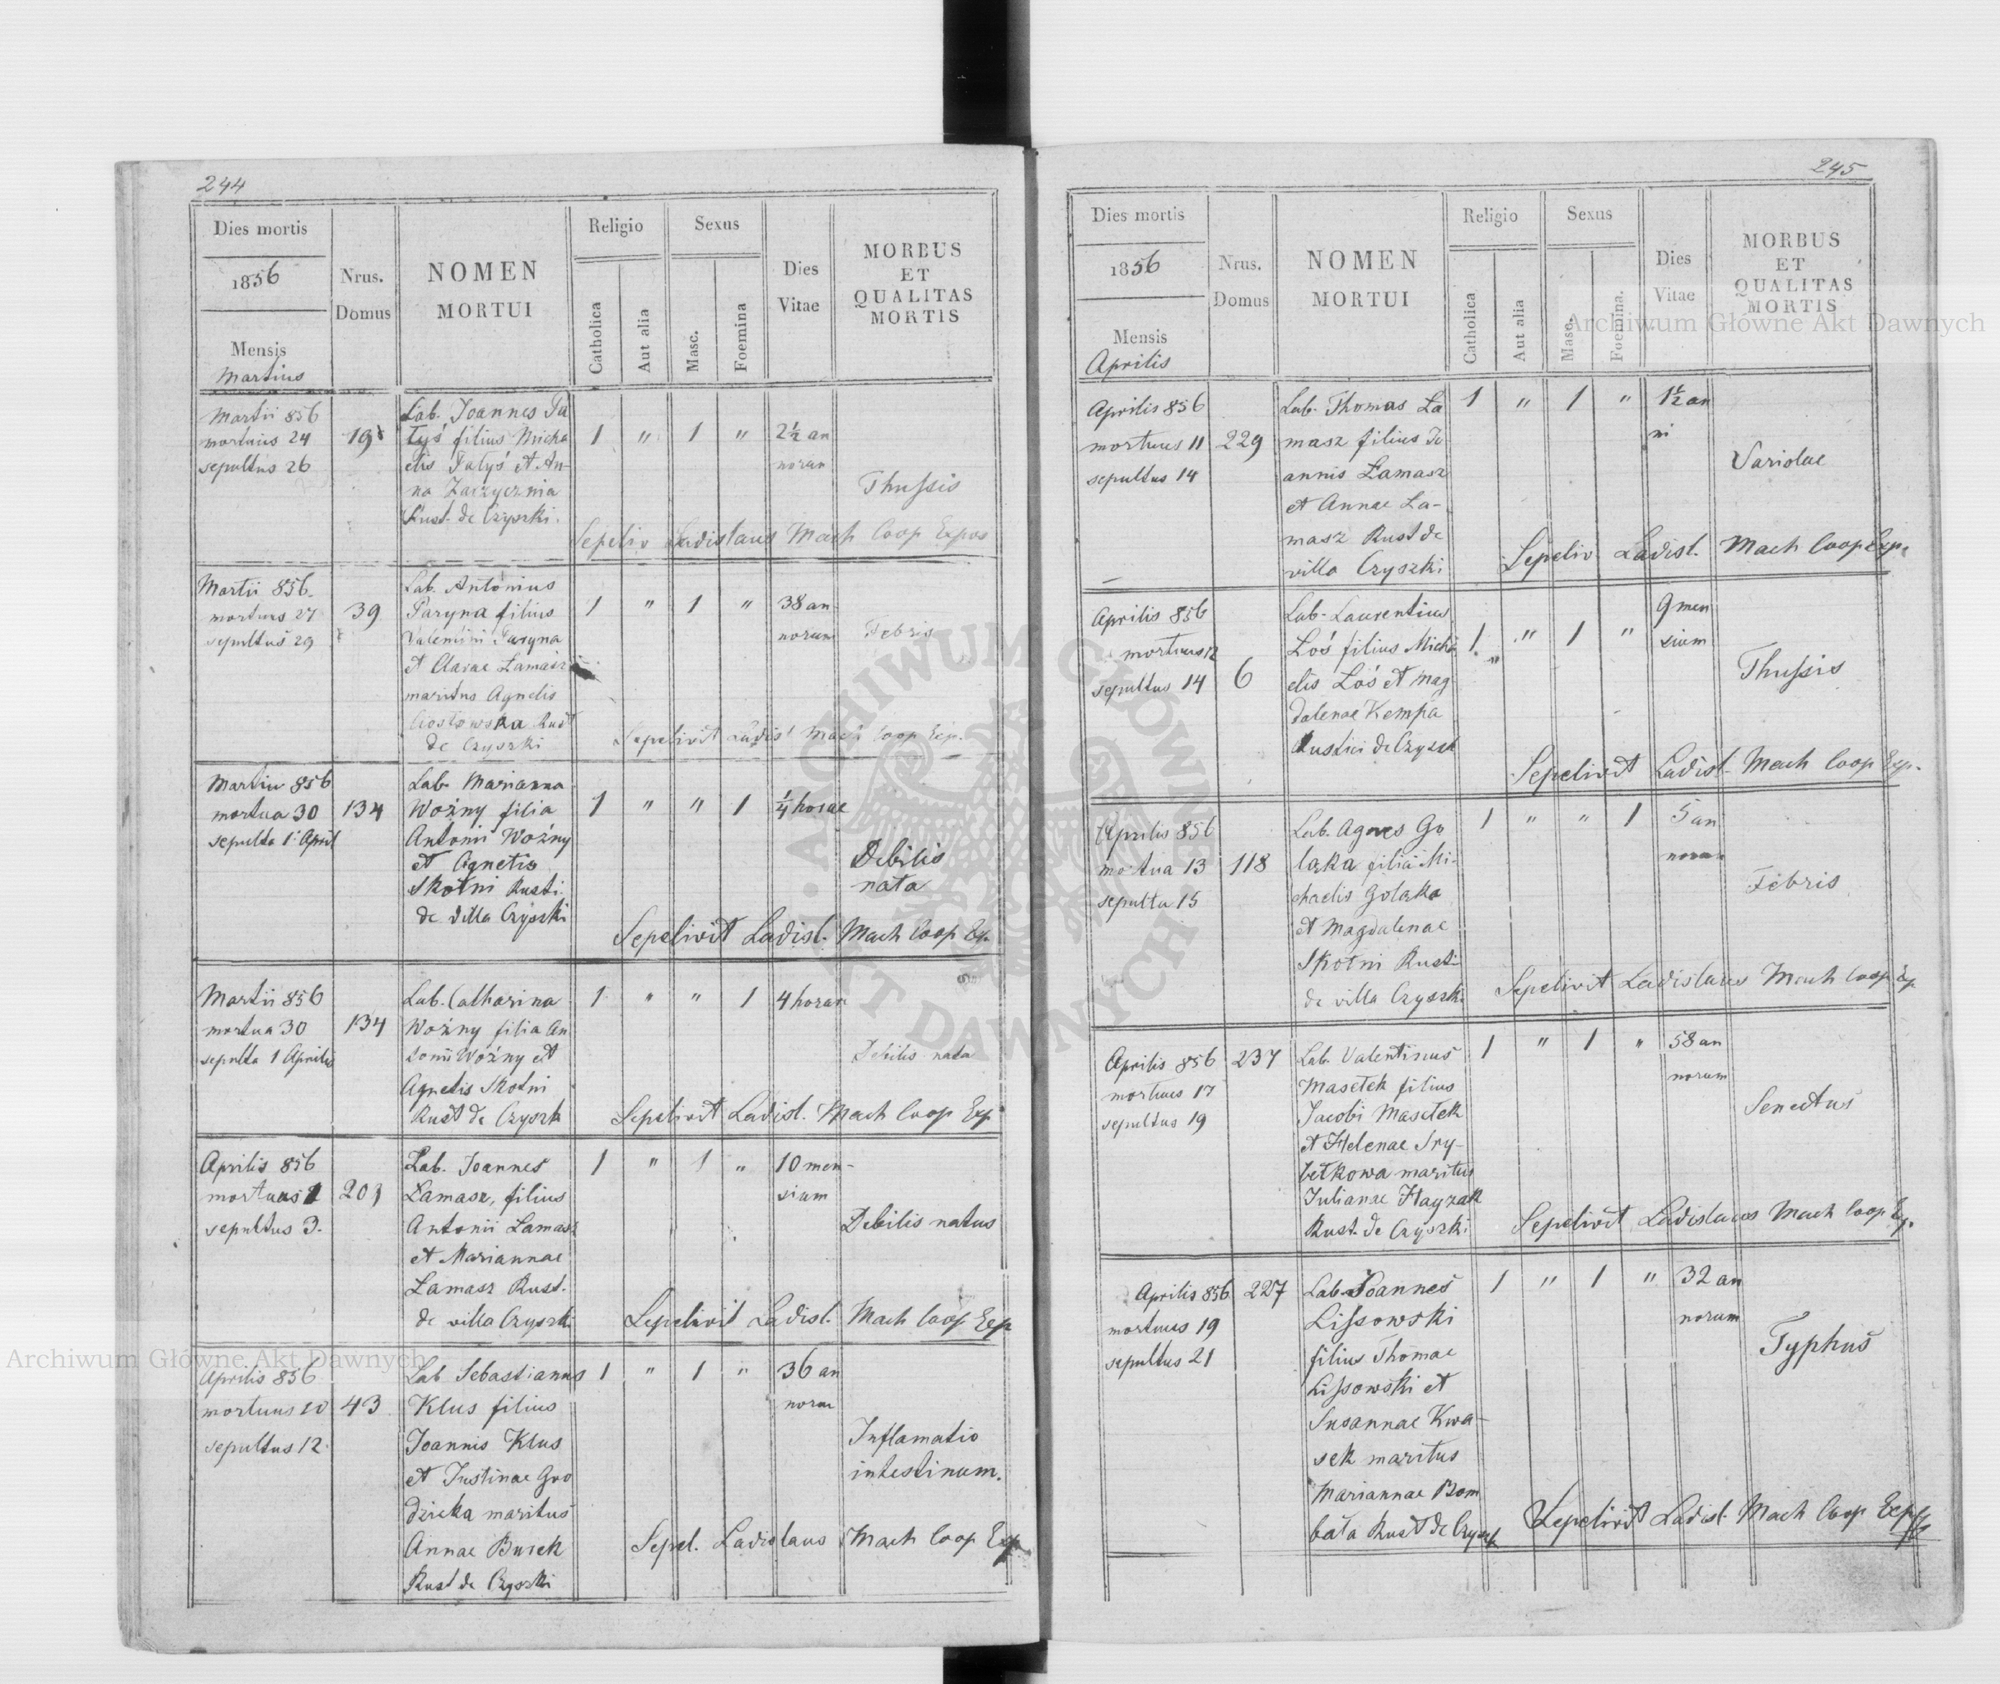 244
Dies mortis
1856
Mensis
Martius
Nrus.
Domus
NOMEN
MORTUI
Religio
Catholica
Aut alia
Sexus
Masc.
Foemina
Dies
Vitae
MORBUS
ET
QUALITAS
MORTIS
Martii 856
mortuus 24
sepultus 26
Lab. Joannes
filius Micha
elis et An-
na
Rust. de Czyszki.
1 " 1 "
2½ an
norum
Thussis
Sepeliv Ladislaus Mach Coop Expos
Martii 856.
mortuus 27
sepultus 29
39
Lab. Antonius
Paryna filius
Valentini Paryna
et Clarae Łamasz
maritus Agnetis
Rust
de Czyszki
1 " 1 "
38 an
norum
Febris
Sepelivit Ladis! Mach Coop Exp.
Martii 856
mortua 30
sepulta 1 April
134
Lab. Marianna
Woźny filia
Antonii Woźny
et Agnetis
Skotni Rusti.
de Villa Czyszki
1 " " 1
¼ horae
Debilis
nata
Sepelivit Ladisl. Mach Coop Ex.
Martii 856
mortua 30
sepulta 1 Aprilis
134
Lab. Catharina
Woźny filia An
tonii Woźny et
Agnetis Skotni
Rust de Czyszk
1 " " 1
4 horar
Debilis nata
Sepelivit Ladisl. Mach Coop Exp
Aprilis 856
mortuus
sepultus 3.
203
Lab. Joannes
Łamasz, filius
Antonii Łamasz
et Mariannae
Łamasz Rust.
de villa Czyszki
1 " 1 "
10 men-
sium
Debilis natus
Sepelivit Ladisl. Mach Coop Exp
Aprilis 856
mortuus 10
sepultus 12.
43
Lab Sebastianus
Klus filius
Joannis Klus
et Justinae Gro
dzicka maritus
Annae Burek
Rust de Czyszki
1 " 1 "
36 an
norum
Inflamatio
intestinum.
Sepel. Ladislaus Mach Coop Exp
245
Dies mortis
1856
Mensis
Aprilis
Nrus.
Domus
NOMEN
MORTUI
Religio
Catholica
Aut alia
Sexus
Masc.
Foemina.
Dies
Vitae
MORBUS
ET
QUALITAS
MORTIS
Aprilis 856
mortuus 11
sepultus 14
229
Lab. Thomas Ła
masz filius Jo
annis Łamasz
et Annae Ła-
masz Rust de
villa Czyszki
1 " 1 "
1½ an
ni
Variolae
Sepeliv. Ladisl. Mach Coop Exp.
Aprilis 856
mortuus 12
sepultus 14
6
Lab. Laurentius
Łoś filius Micha
elis Łoś et Mag
dalenae Kempa
Rustici de Czyszk
1 " 1 "
9 men
sium
Thussis
Sepelivit Ladisl. Mach Coop Exp.
Aprilis 856
mortua 13
sepulta 15
118
Lab. Agnes Go
larka filia Mi-
chaelis Golarka
et Magdalenae
Skotni Rusti-
de villa Czyszki
1 " " 1
5 an
norum
Febris
Sepelivit Ladislaus Mach Coop Exp
Aprilis 856
mortuus 17
sepultus 19
237
Lab. Valentinus
Masełek filius
Jacobi Masełek
et Helenae Try-
bełkowa maritus
Julianae Hayzak
Rust. de Czyszki
1 " 1 "
58 an
norum
Senectus
Sepelivit Ladislaus Mach Coop Exp.
Aprilis 856
mortuus 19
sepultus 21
227
Lab. Joannes
Lissowski
filius Thomae
Lissowski et
Susannae Kwa-
sek maritus
Mariannae Bom
bała Rust de Czyszk
1 " 1 "
32 an
norum
Typhus
Sepelivit Ladisl. Mach Coop Exp
Archiwum Główne Akt Dawnych
Archiwum Główne Akt Dawnych
ARCHIWUM GŁÓWNE AKT DAWNYCH